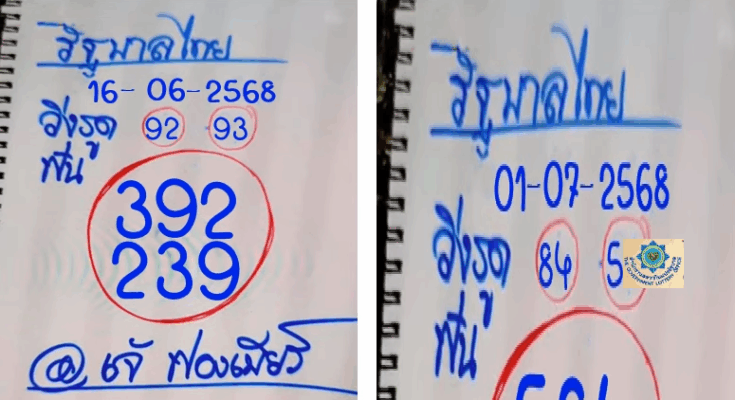 รัฐบาลไทย
16-06-2568
วิ่งรูด 92 93
ฟัน
392
239
@ เจ๊ ฟองเบียร์
รัฐบาลไทย
01-07-2568
วิ่งรูด 84 5
ฟัน